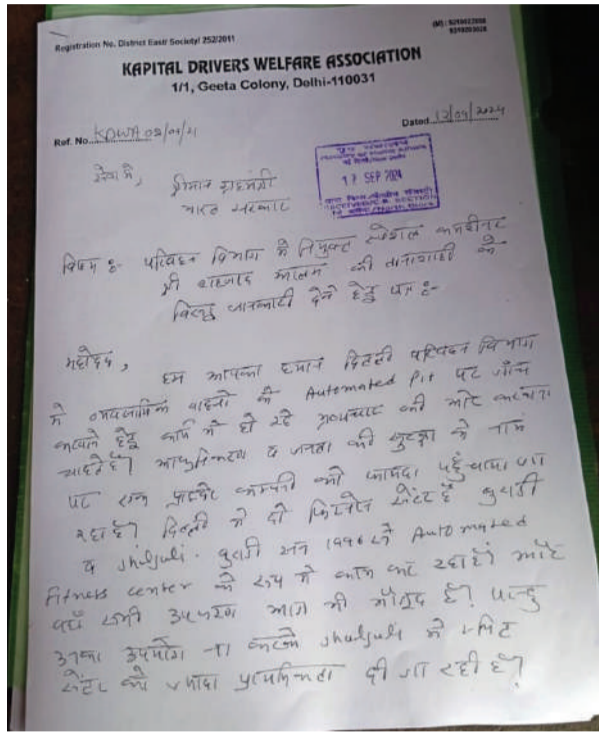 Registration No. District East/ Society/ 252/2011
KAPITAL DRIVERS WELFARE ASSOCIATION
1/1, Geeta Colony, Delhi-110031
Ref. No. KDWA
Dated 12/09/2024
17 SEP 2024
सेवा में,
श्रीमान गृहमंत्री
भारत सरकार
विषय :- परिवहन विभाग में नियुक्त स्पेशल कमीश्नर
श्री शहजाद आलम की तानाशाही के
विरुद्ध जानकारी देने हेतु पत्र :-
महोदय,
हम आपका ध्यान दिल्ली परिवहन विभाग
में व्यवसायिक वाहनों के Automated Pit पर जाँच
करवाने हेतु कार्य में हो रहे भ्रष्टाचार की ओर करवाना
चाहते है। आधुनिकरण व जनता की सुरक्षा के नाम
पर एक प्राइवेट कम्पनी को फायदा पहुँचाया जा
रहा है। दिल्ली में दो फिटनेस सेंटर है बुराडी
व Jhuljuli. बुराडी सन 1996 से Automated
Fitness center के रूप में काम कर रहा है। और
वहाँ सभी उपकरण आज भी मौजूद है। परन्तु
उनका उपयोग ना करके Jhuljuli में स्थित
सेंटर को ज्यादा प्राथमिकता दी जा रही है।